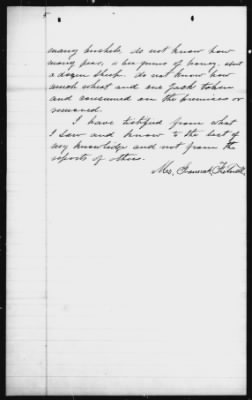 many bushels, do not know how
many peas, a bee gums of honey, about
a dozen sheep. do not know how
much wheat and one Jack taken
and consumed on the premises or
removed.
I have testified from what
I saw and know to the best of
my knowledge and not from the
reports of others.
Mrs.